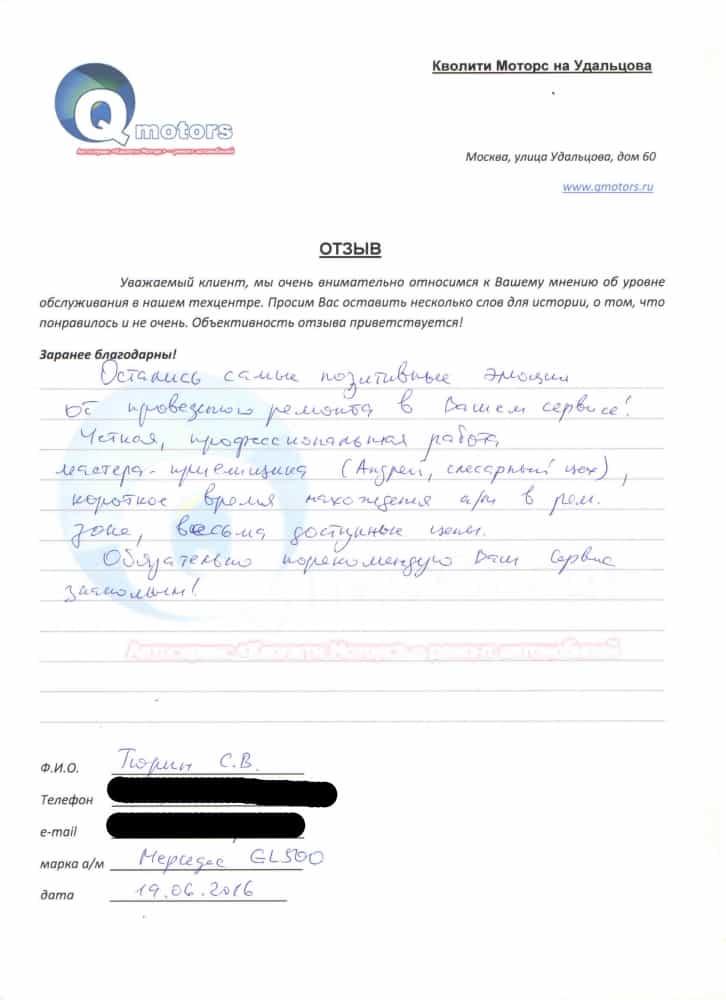 Кволити Моторс на Удальцова
Q motors
Автосервис «Кволити Моторс» - ремонт автомобилей
Москва, улица Удальцова, дом 60
www.qmotors.ru
ОТЗЫВ
Уважаемый клиент, мы очень внимательно относимся к Вашему мнению об уровне
обслуживания в нашем техцентре. Просим Вас оставить несколько слов для истории, о том, что
понравилось и не очень. Объективность отзыва приветствуется!
Заранее благодарны!
Остались самые позитивные эмоции
от проведеного ремонта в Вашем сервисе!
Четкая, профессиональная работа
мастера-приемщика (Андрей, слесарный цех),
короткое время нахождения а/м в рем.
зоне, весьма доступные цены.
Обязательно порекомендую Ваш сервис
знакомым!
Автосервис «Кволити Моторс» - ремонт автомобилей
Ф.И.О. Тюрин С.В.
Телефон
e-mail
марка а/м Мерседес GL500
дата 19.06.2016